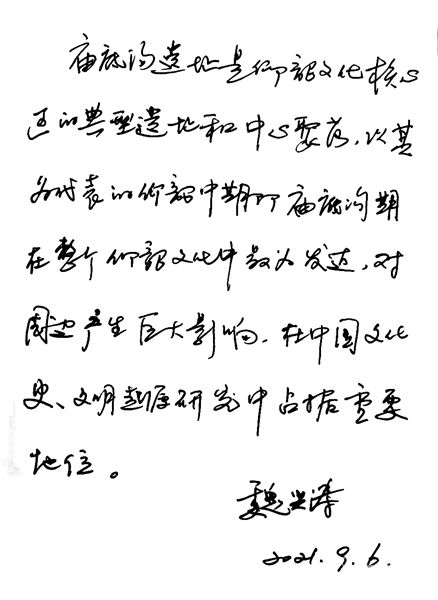 庙底沟遗址是仰韶文化核心
区的典型遗址和中心聚落，以其
为代表的仰韶中期即庙底沟期
在整个仰韶文化中最为发达，对
周边产生巨大影响，在中国文化
史、文明起源研究中占据重要
地位。
魏兴涛
2021.9.6.